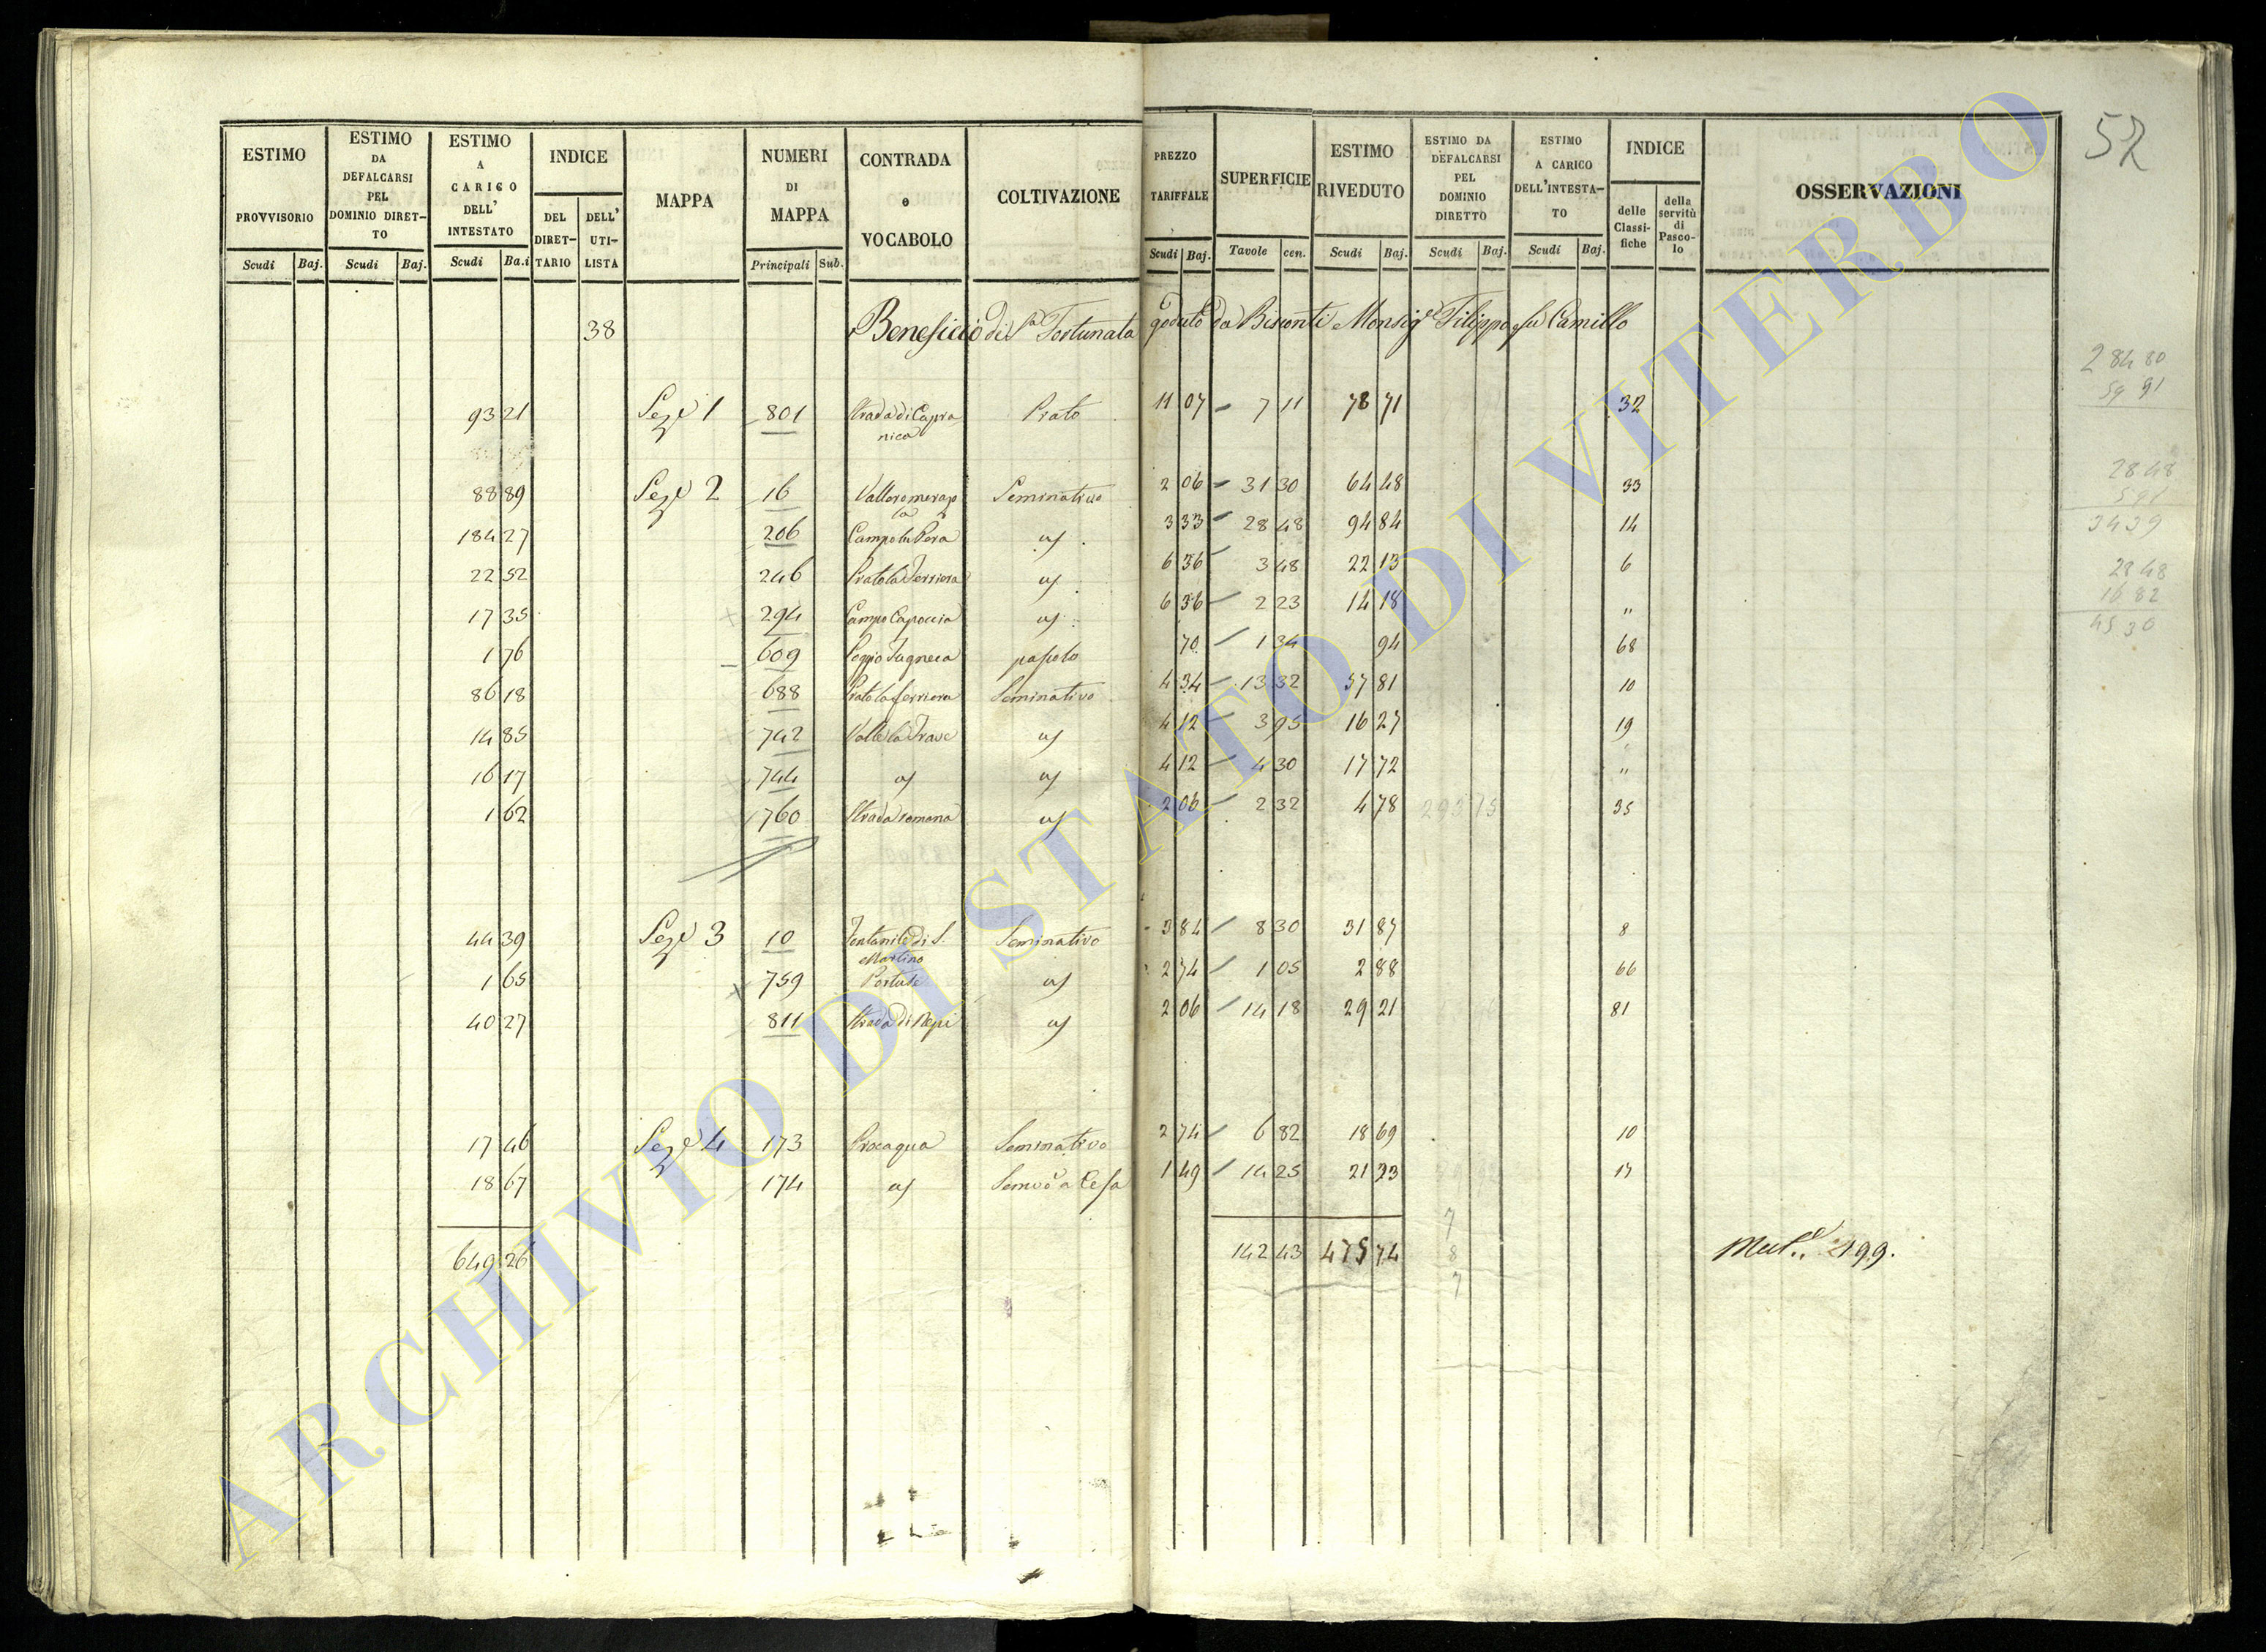 52
ESTIMO PROVVISORIO
ESTIMO DA DEFALCARSI PEL DOMINIO DIRET-TO
ESTIMO A CARICO DELL' INTESTATO
INDICE
DEL DIRET-TARIO
DELL' UTI-LISTA
MAPPA
NUMERI DI MAPPA
CONTRADA e VOCABOLO
COLTIVAZIONE
PREZZO TARIFFALE
SUPERFICIE
ESTIMO RIVEDUTO
ESTIMO DA DEFALCARSI PEL DOMINIO DIRETTO
ESTIMO A CARICO DELL'INTESTA-TO
INDICE
delle Classi-fiche
della servitù di Pasco-lo
OSSERVAZIONI
Scudi Baj. Scudi Baj. Scudi Ba.i Principali Sub. Scudi Baj. Tavole cen. Scudi Baj. Scudi Baj. Scudi Baj.
38 Beneficio di Sa Fortunata goduto da Bisconti Monsigr Filippo fu Camillo
93 21 Seze 1 801 Strada di Capra Prato 11 07 7 11 78 71 32
nica
88 89 Seze 2 16 Seminativo 2 06 31 30 64 48 33
184 27 206 Campo la Pera " 3 33 28 48 94 84 14
22 52 246 Prato la Ferriera " 6 36 3 48 22 13 6
17 35 294 Campo Capoccia " 6 36 2 23 14 18 "
1 76 609 Poggio pascolo 70 1 34 94 68
86 18 688 Prato la ferriera Seminativo 4 34 13 32 57 81 10
14 85 742 Valle la Trave " 4 12 3 95 16 27 19
16 17 744 " " 4 12 4 30 17 72 "
1 62 760 Strada romana " 2 06 2 32 4 78 293 15 35
44 39 Seze 3 10 Fontanile di S. Seminativo 3 84 8 30 31 87 8
Martino
1 65 759 " 2 74 1 05 2 88 66
40 27 811 Strada di Nepi " 2 06 14 18 29 21 81
17 46 Seze 4 173 Procaqua Seminativo 2 74 6 82 18 69 10
18 67 174 " Semvo a Cesa 1 49 14 25 21 23 17
649 26 142 43 475 74 Mut.e 199.
7
8
7
284 80
59 91
28 48
5 91
34 39
28 48
16 82
45 30
ARCHIVIO DI STATO DI VITERBO